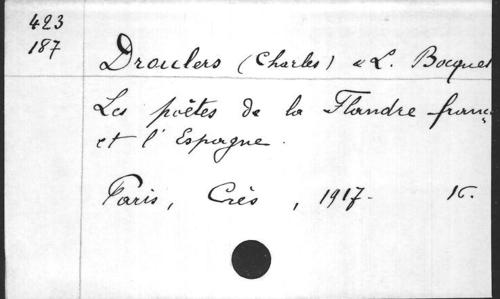 423
187
Droulers (Charles) & L. Bocquet
Les poëtes de la Flandre franç
et l'Espagne.
Paris, Crès, 1917- 16.